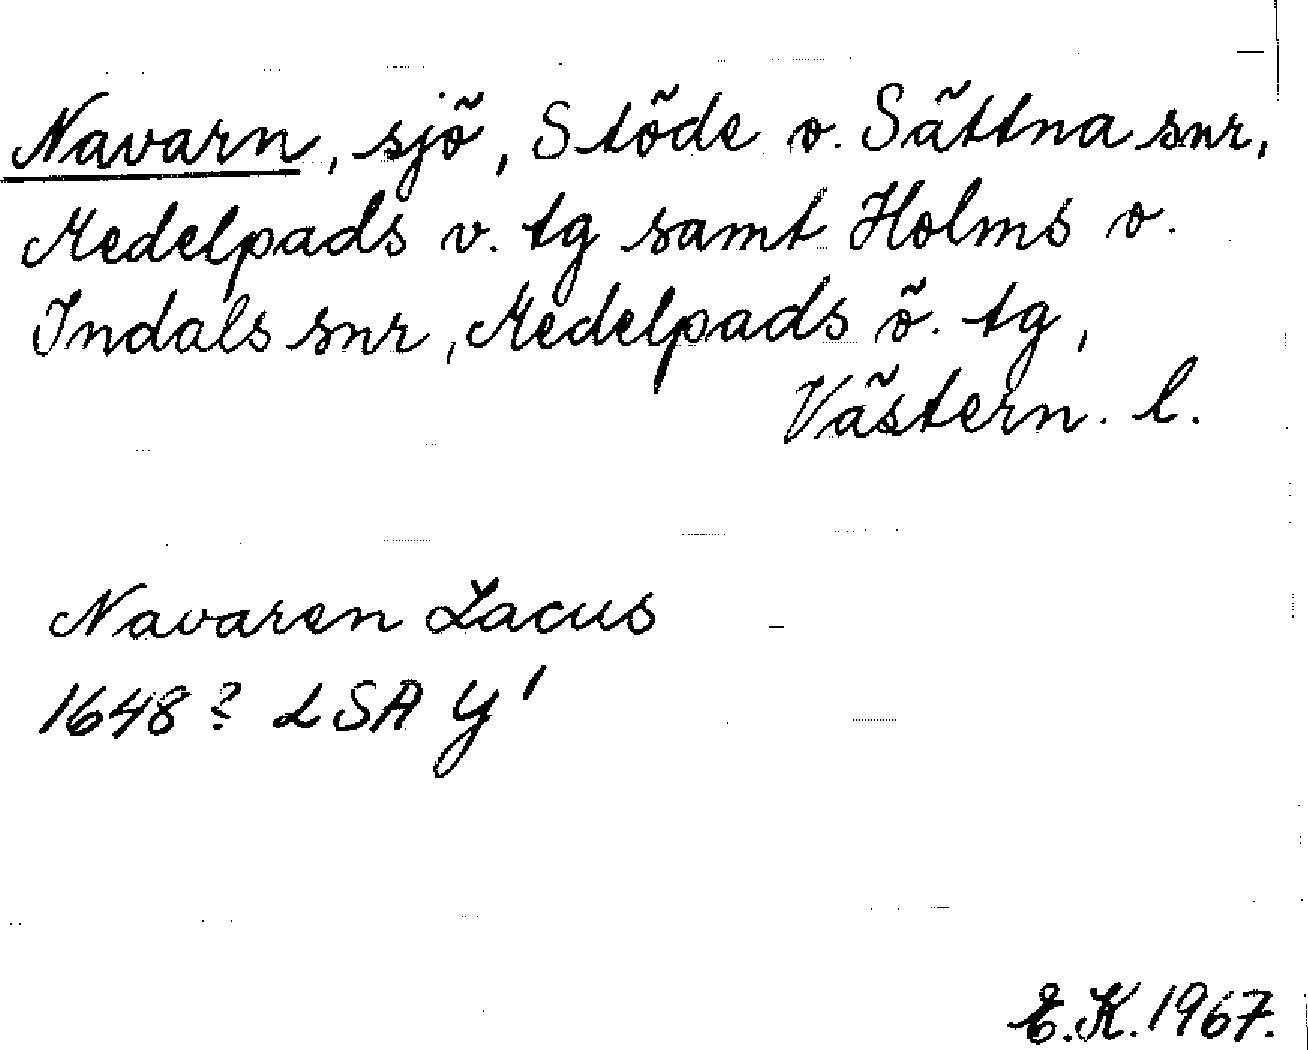 Navarn, sjö, Stöde o. Sättna snr,
Medelpads v. tg samt Holms o.
Indals snr, Medelpads ö. tg,
Västern. l.
Navaren Lacus
1648? LSA Y'
E.K. 1967.